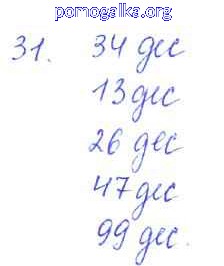 pomogalka.org
31. 34 дес
13 дес
26 дес
47 дес
99 дес.